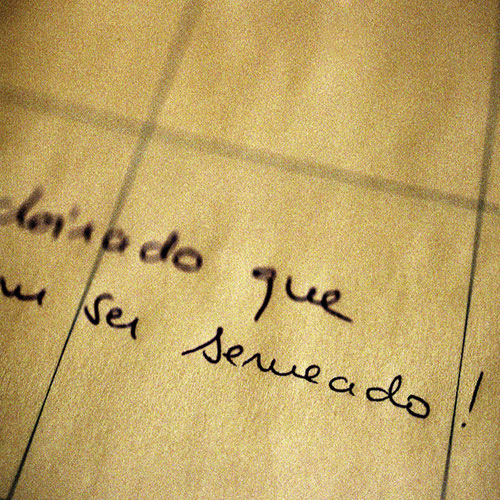 doirado que
m ser semeado!